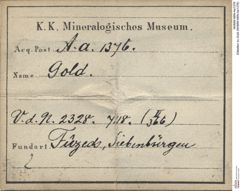 K. K. Mineralogisches Museum.
Acq. Post A.a. 1376.
Name Gold.
V.d.N. 2328. 718.
Fundort Füzeds, Siebenbürgen